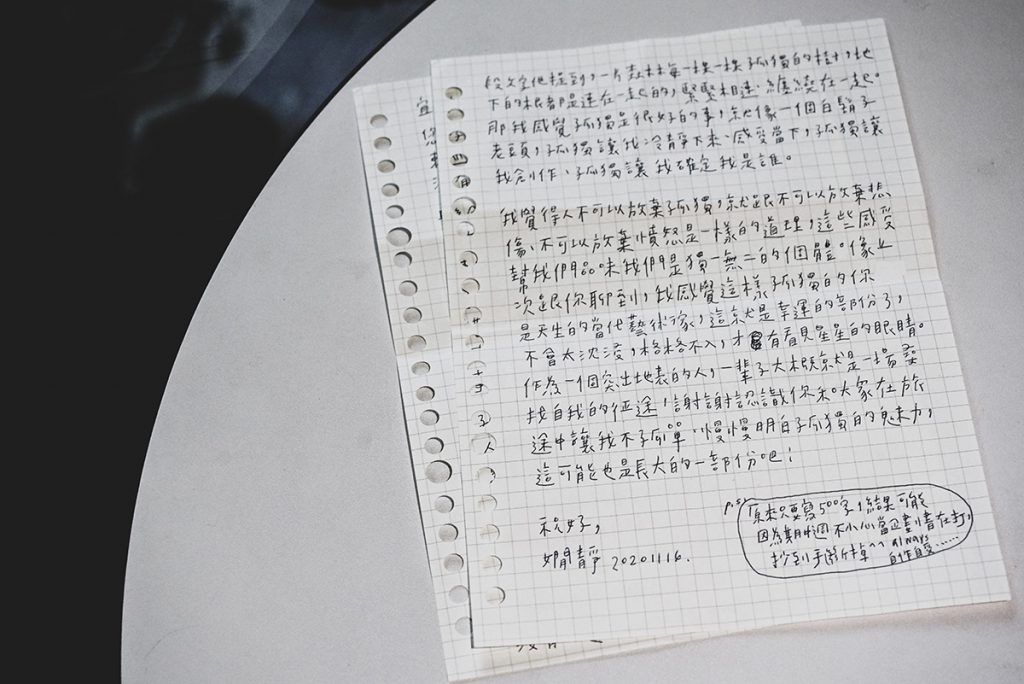 段文字他提到，一片森林每一棵一棵孤獨的樹，地
下的根都是連在一起的，緊緊相連、纏繞在一起。
那我感覺孤獨是很好的事，就像一個白鬍子
老頭，孤獨讓我冷靜下來、感受當下，孤獨讓
我創作、孤獨讓我確定我是誰。
我覺得人不可以放棄孤獨，就跟不可以放棄悲
傷、不可以放棄憤怒是一樣的道理，這些感受
幫我們品味我們是獨一無二的個體。像上
次跟你聊到，我感覺這樣孤獨的你
是天生的當代藝術家，這就是幸運的部份了，
不會太沈浸，格格不入，才有看見星星的眼睛。
作為一個突出地表的人，一輩子大概就是一場尋
找自我的征途，謝謝認識你和大家在旅
途中讓我不孤單、慢慢明白孤獨的魅力，
這可能也是長大的一部份吧！
祝好，
嫺靜 20201116.
p.s.
原來只要寫500字，結果可能
因為期待週不小心當企劃書在打，
抄到手斷掉^^ always
自作自受......